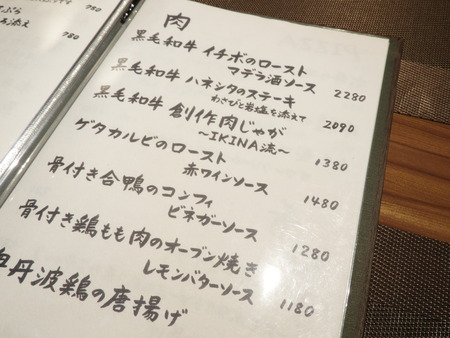 780
ろ添え
780
肉
黒毛和牛 イチボのロースト
マデラ酒ソース 2280
黒毛和牛 ハネシタのステーキ
わさびと岩塩を添えて 2090
黒毛和牛 創作肉じゃが
〜IKINA流〜 1380
ゲタカルビのロースト
赤ワインソース 1480
骨付き合鴨のコンフィ
ビネガーソース 1280
骨付き鶏もも肉のオーブン焼き
レモンバターソース 1180
丹波鶏の唐揚げ